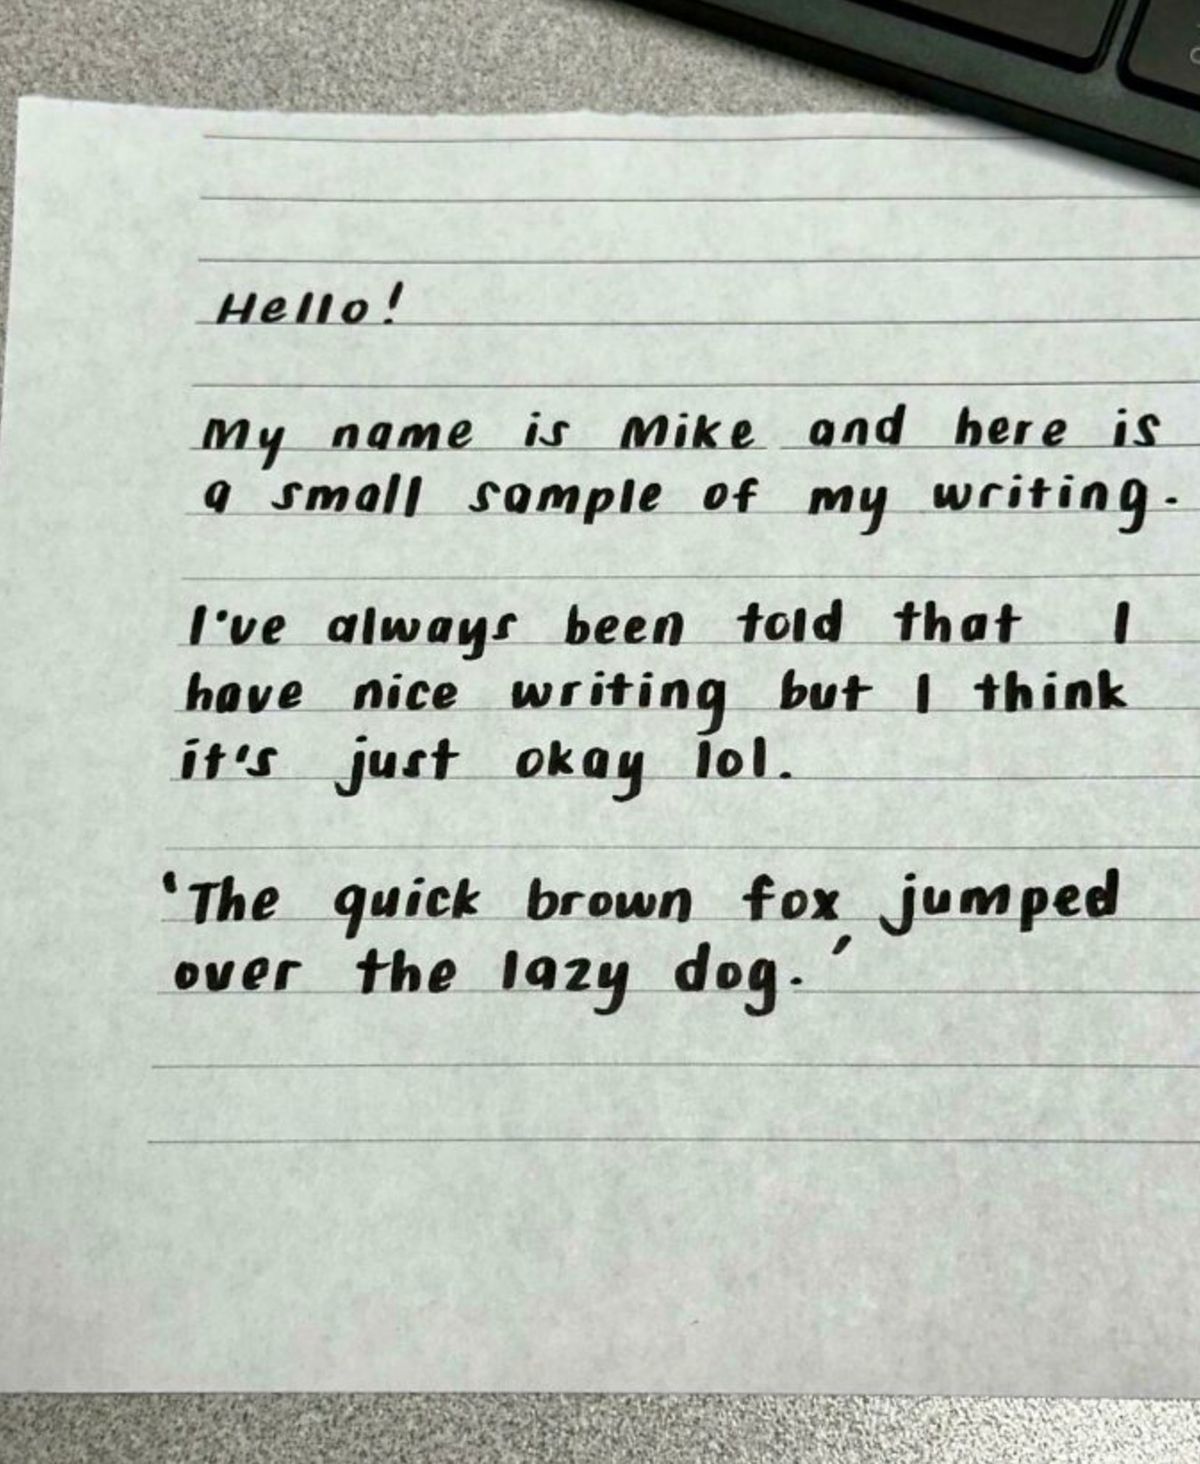 Hello!
My name is Mike and here is
a small sample of my writing.
I've always been told that I
have nice writing but I think
it's just okay lol.
'The quick brown fox jumped
over the lazy dog.'